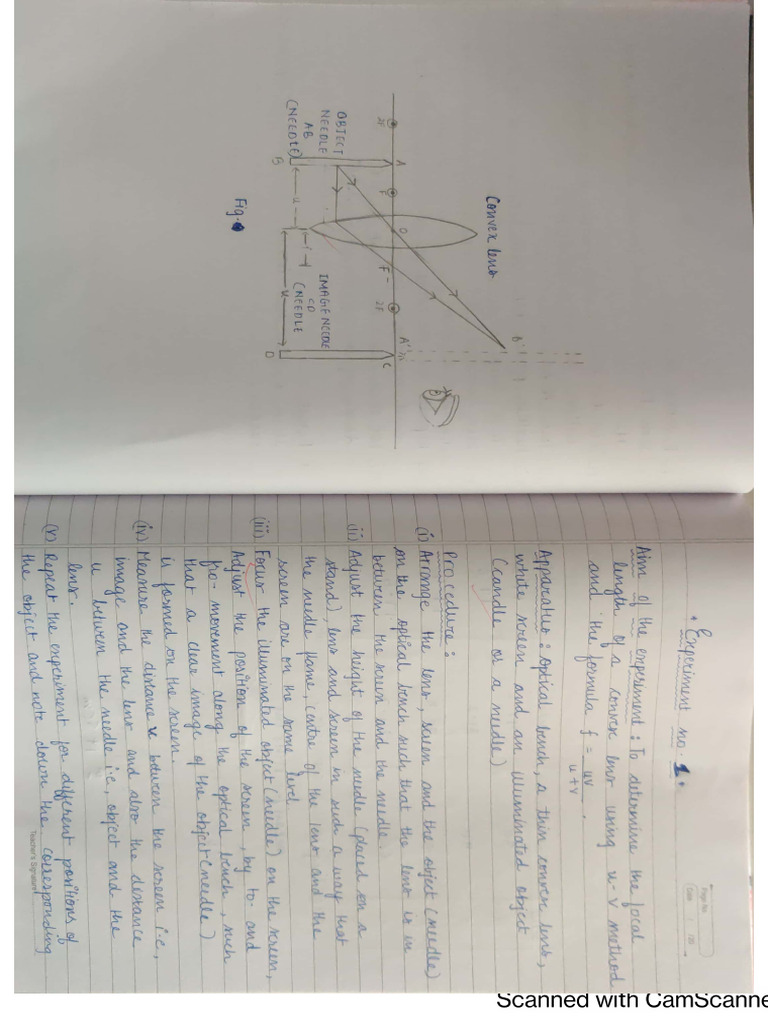 Convex lens
B'
2F
A
F
O
F
2F
A'
C
OBJECT
NEEDLE
AB
(NEEDLE)
B
u
f
IMAGE NEEDLE
CD
(NEEDLE
D
Fig.
Page No.
Date
• Experiment no. 1 •
Aim of the experiment : To determine the focal
length of a convex lens using u-v method
and the formula f = uv
u+v
Apparatus : Optical bench, a thin convex lens,
white screen and an illuminated object
(candle or a needle)
Procedure :
(i) Arrange the lens, screen and the object (needle)
on the optical bench such that the lens is in
between the screen and the needle.
(ii) Adjust the height of the needle (placed on a
stand), lens and screen in such a way that
the needle flame, centre of the lens and the
screen are on the same level.
(iii) Focus the illuminated object (needle) on the screen,
Adjust the position of the screen, by to- and
fro- movement along the optical bench, such
that a clear image of the object (needle)
is formed on the screen.
(iv) Measure the distance v between the screen i.e,
image and the lens and also the distance
u between the needle i.e, object and the
lens.
(v) Repeat the experiment for different positions of
the object and note down the corresponding
Teacher's Signature
Scanned with CamScanne